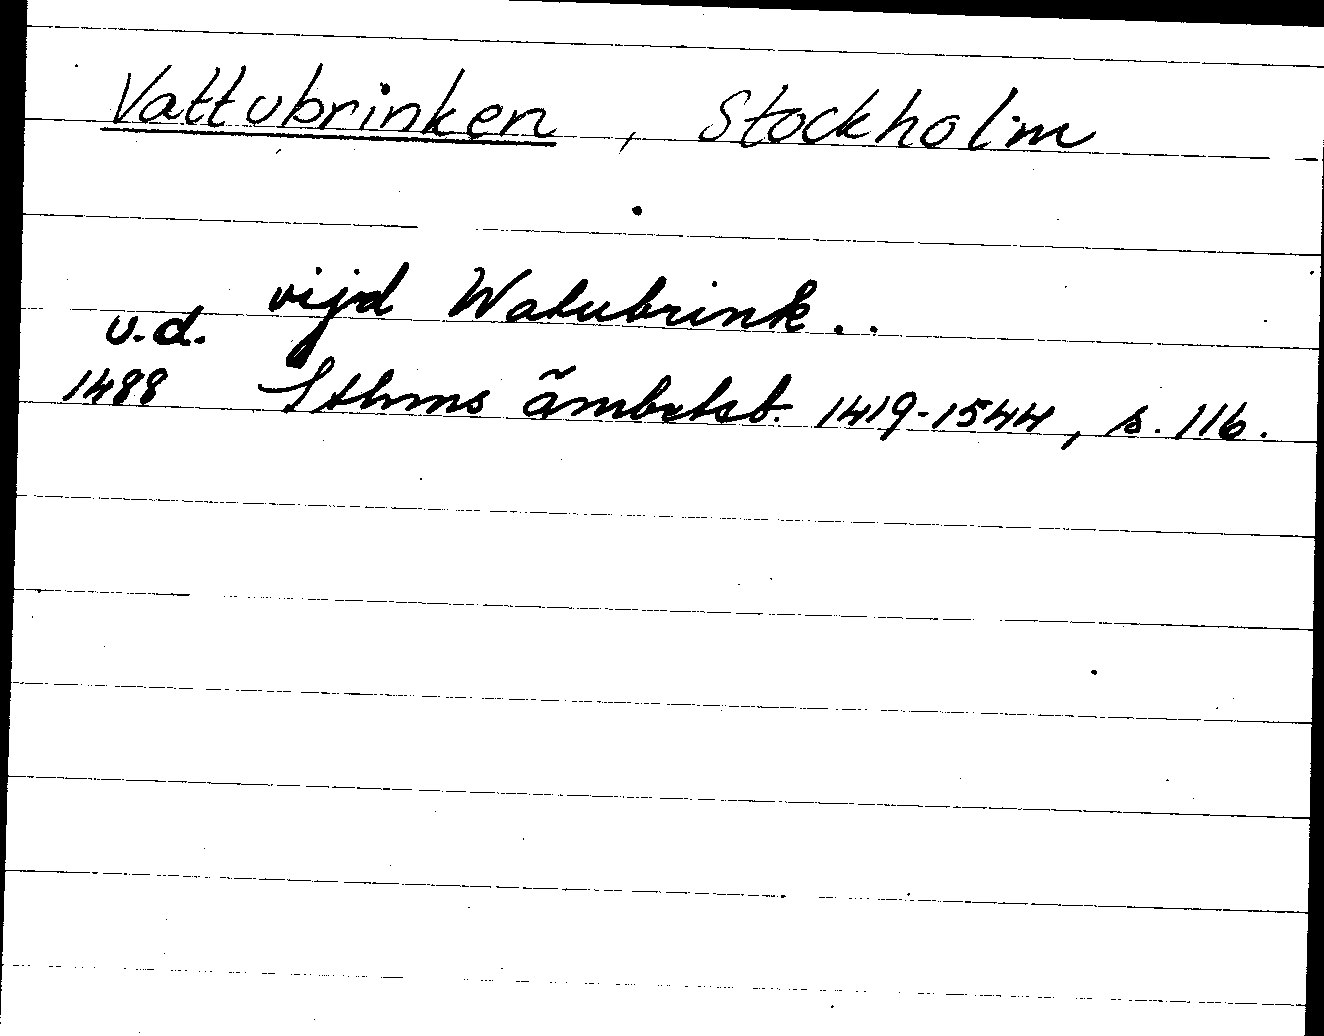 Vattubrinken, Stockholm
vijd Watubrink..
u.d.
1488 Sthms ämbetsb. 1419-1544, s. 116.